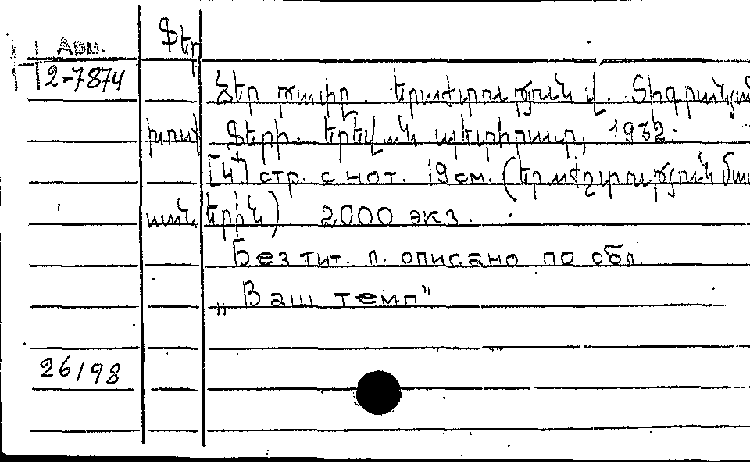 Фեր
Арм.
2-7874
Ձեր տափը. Երաժշտություն Վ. Տիգրանյան
խոսք Ֆերի. Երևան պետհրատ, 1932.
[4] стр. с нот. 19 см. (Երաժշտություն մաս
սաներին) 2000 экз.
Без тит. л. описано по обл
„Ваш темп"
26198